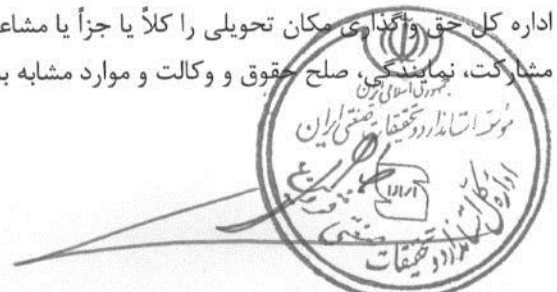 اداره کل حق واگذاری مکان تحویلی را کلاً یا جزأ یا مشاعـ
مشارکت، نمایندگی، صلح حقوق و وکالت و موارد مشابه بـ
جمهوری اسلامی ایران
موسسه استاندارد و تحقیقات صنعتی ایران
اداره کل استاندارد و تحقیقات صنعتی